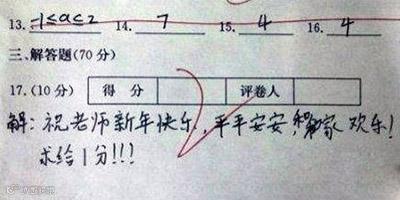 13. -1≤a≤2 14. 7 15. 4 16. 4
三、解答题(70分)
17.(10分) 得 分 评卷人
解:祝老师新年快乐,平平安安,家欢乐!
求给1分!!!